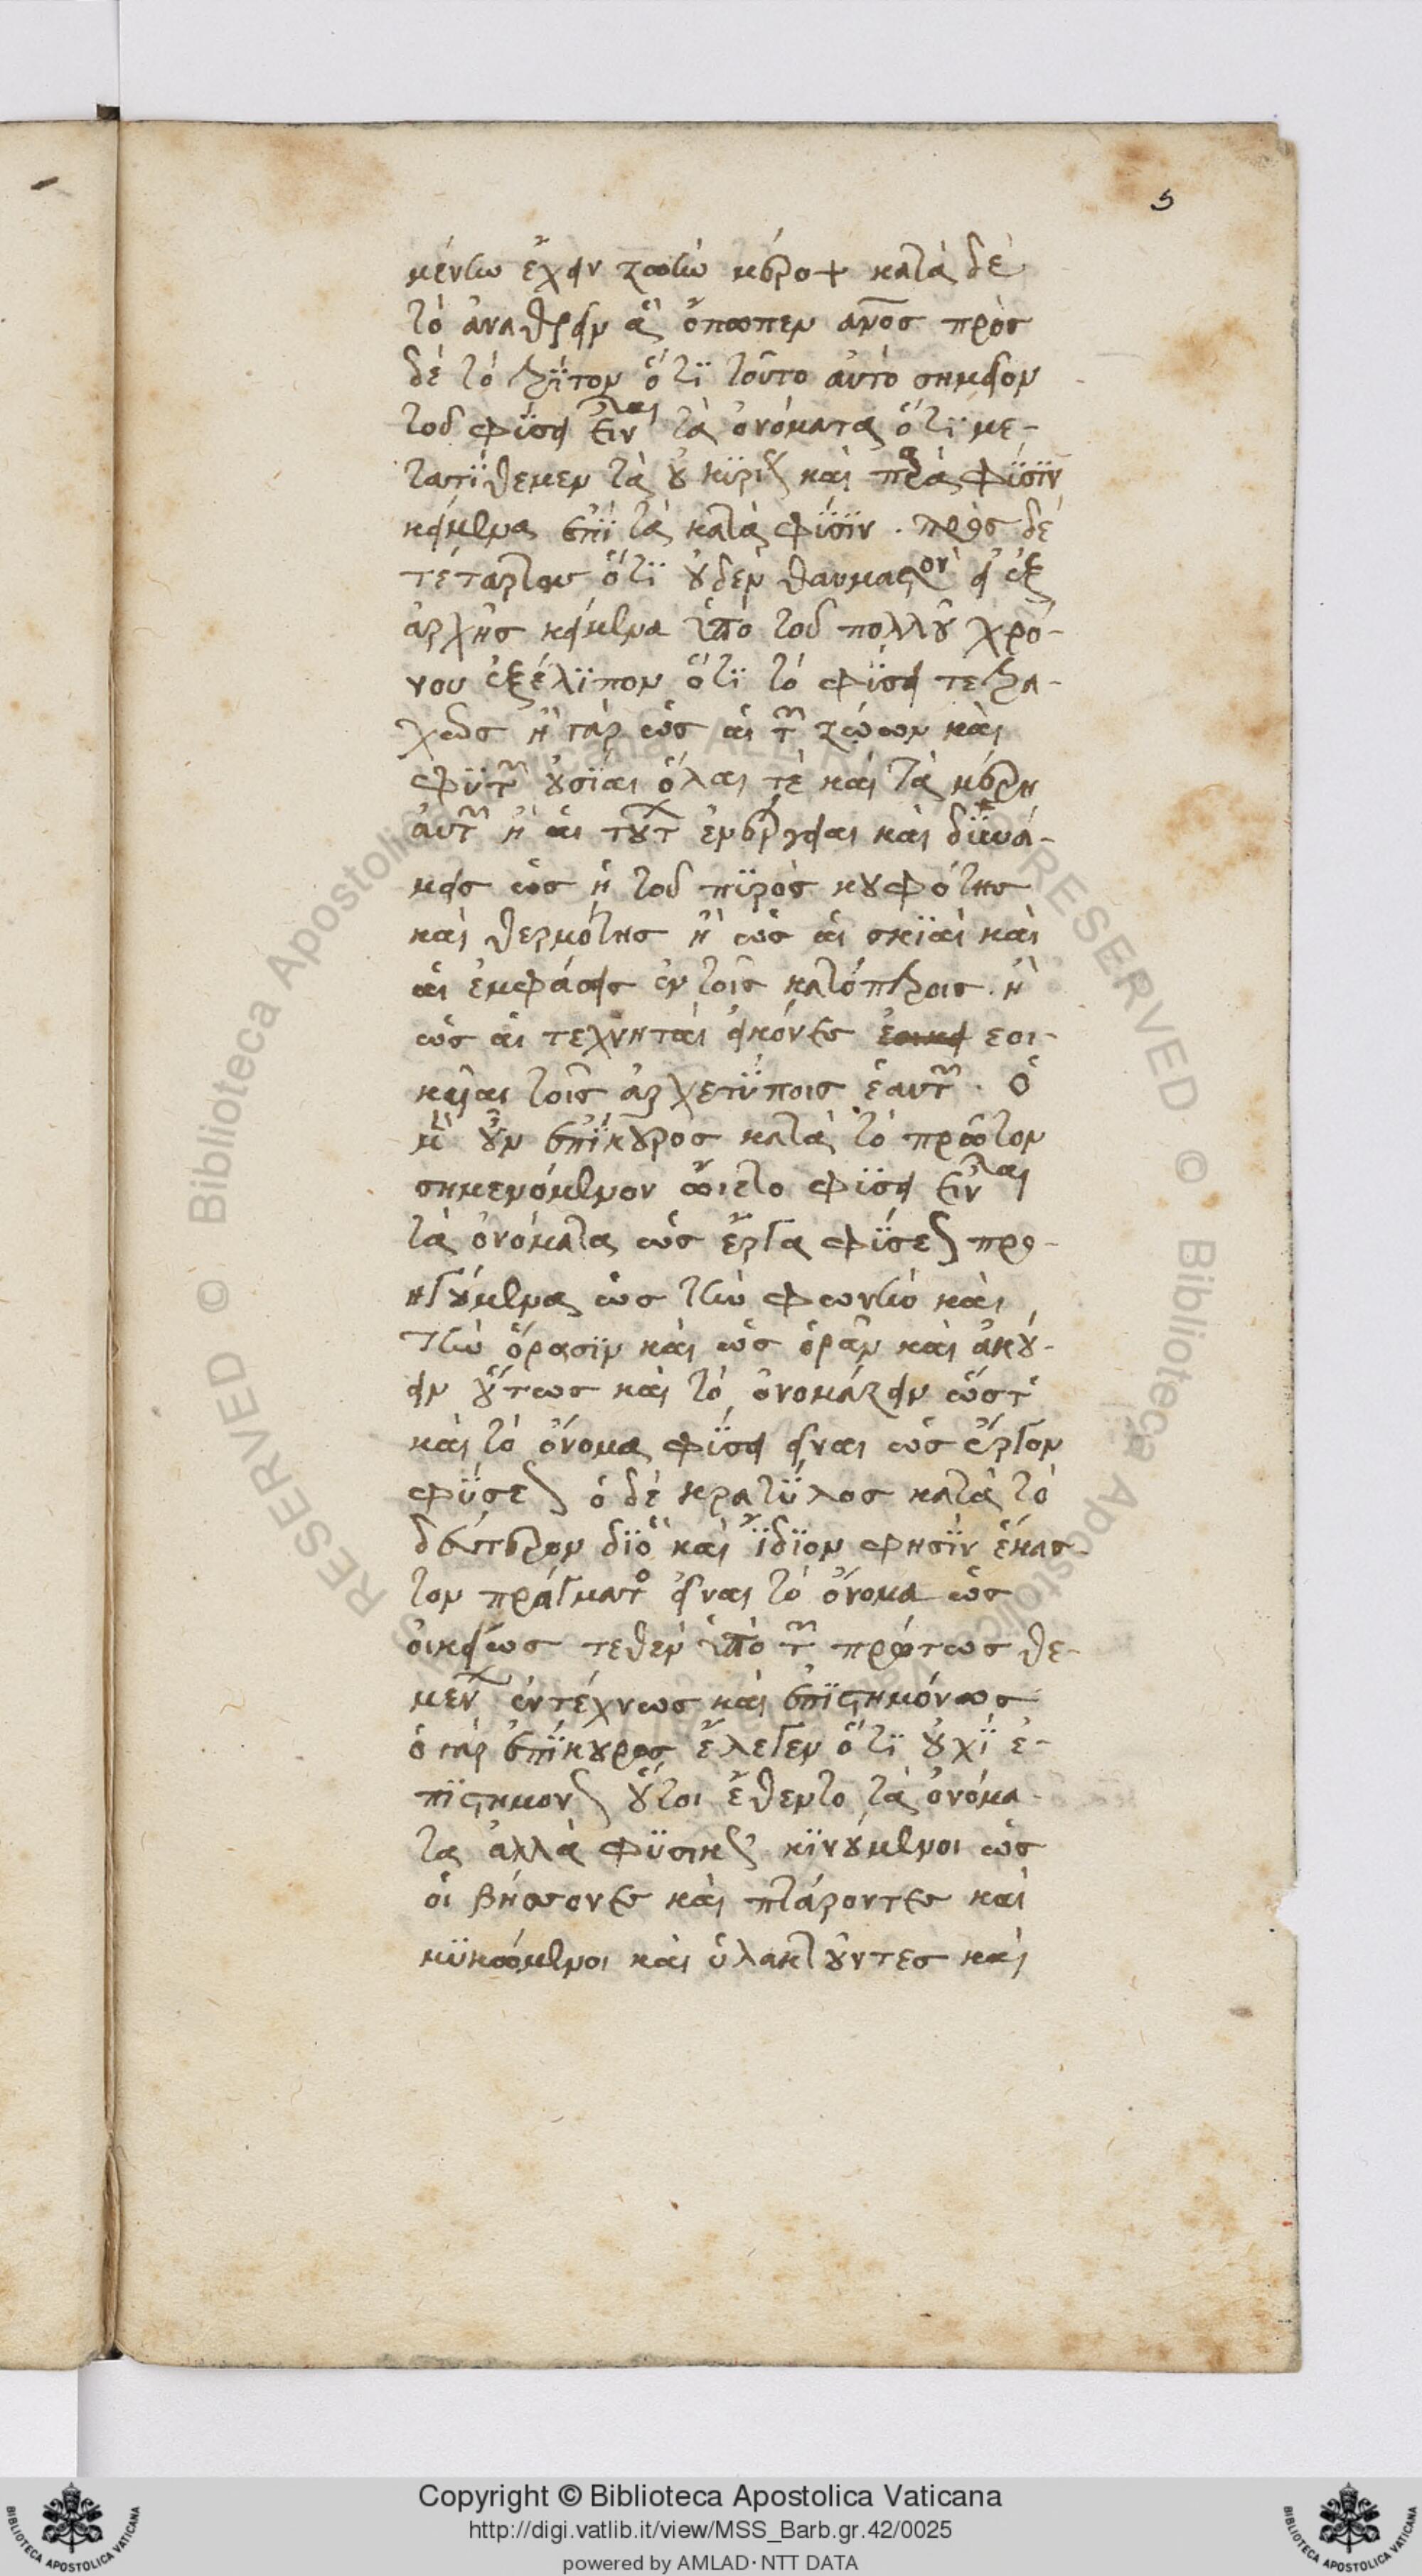 5
μένην ἔχειν ζωὴν μέροψ κατὰ δὲ
τὸ ἀναθρεῖν ἃ ὄπωπεν ἄνος πρὸς
δὲ τὸ τρίτον ὅτι τοῦτο αὐτὸ σημεῖον
τοῦ φύσει εἶναι τὰ ὀνόματα ὅτι με-
τατίθεμεν τὰ οὐ κυρίως καὶ παρὰ φύσιν
κείμενα ἐπὶ τὰ κατὰ φύσιν . πρὸς δὲ
τέταρτον ὅτι οὐδὲν θαυμαστὸν εἰ ἐξ
ἀρχῆς κείμενα ὑπὸ τοῦ πολλοῦ χρό-
νου ἐξέλιπον ὅτι τὸ φύσει τετρα-
χῶς ἢ γὰρ ὡς αἱ τῶν ζώων καὶ
φυτῶν οὐσίαι ὅλαι τε καὶ τὰ μέρη
αὐτῶν ἢ αἱ τούτων ἐνέργειαι καὶ δυνά-
μεις ὡς ἡ τοῦ πυρὸς κουφότης
καὶ θερμότης ἢ ὡς αἱ σκιαὶ καὶ
αἱ ἐμφάσεις ἐν τοῖς κατόπτροις . ἢ
ὡς αἱ τεχνηταὶ εἰκόνες ἐοικει εοι-
κυῖαι τοῖς ἀρχετύποις ἑαυτῶν . Ὁ
μὲν οὖν ἐπίκουρος κατὰ τὸ πρῶτον
σημενόμενον ὤιετο φύσει εἶναι
τὰ ὀνόματα ὡς ἔργα φύσεως προ-
ηγούμενα ὡς τὴν φωνὴν καὶ
τὴν ὅρασιν καὶ ὡς ὁρᾶν καὶ ἀκού-
ειν οὕτως καὶ τὸ ὀνομάζειν ὥστε
καὶ τὸ ὄνομα φύσει εἶναι ὡς ἔργον
φύσεως ὁ δὲ κρατύλος κατὰ τὸ
δεύτερον διὸ καὶ ἴδιον φησὶν ἑκασ-
τον πράγματος εἶναι τὸ ὄνομα ὡς
οἰκείως τεθὲν ὑπὸ τῶν πρώτως θε-
μένων ἐντέχνως καὶ ἐπιστημόνως
ὁ γὰρ ἐπίκουρος ἔλεγεν ὅτι οὐχὶ ἐ-
πιστημόνως οὗτοι ἔθεντο τὰ ὀνόμα-
τα ἀλλὰ φυσικῶς κινούμενοι ὡς
οἱ βήσσοντες καὶ πταίροντες καὶ
μυκώμενοι καὶ ὑλακτοῦντες καὶ
Copyright © Biblioteca Apostolica Vaticana
http://digi.vatlib.it/view/MSS_Barb.gr.42/0025
powered by AMLAD·NTT DATA